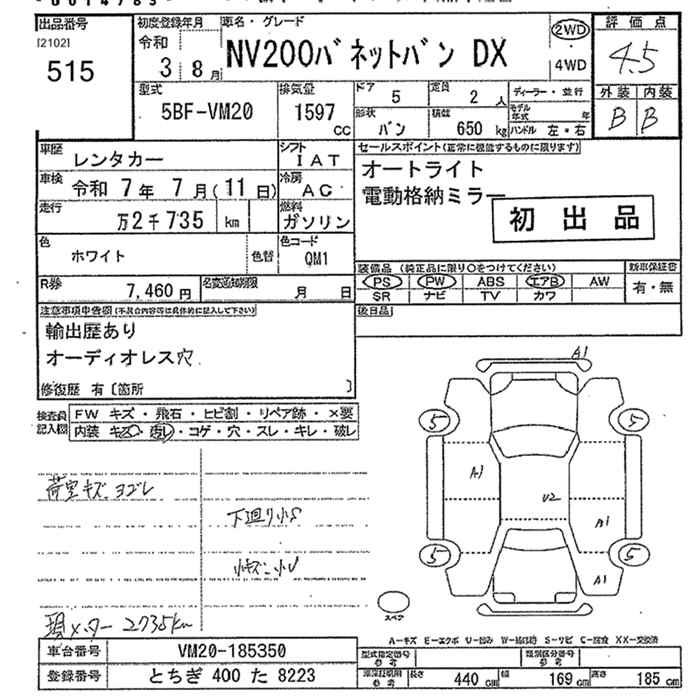 出品番号
[2102]
515
初度登録年月
令和
3 8月
車名・グレード
NV200バネットバン DX
2WD
4WD
評価点
4.5
外装 内装
B B
型式
5BF-VM20
排気量
1597 cc
ドア 5
定員 2 人
形状 バン
積載 650 kg
ディーラー・並行
モデル年式 年
ハンドル 左・右
車歴 レンタカー
シフト IAT
車検 令和 7年 7月(11日)
冷房 AC
走行 万2千735 km
燃料 ガソリン
色 ホワイト 色替
色コード QM1
R券 7,460円
名変通知期限 月 日
セールスポイント(正常に機能するものに限ります)
オートライト
電動格納ミラー
初出品
装備品 (純正品に限り○をつけてください)
PS PW ABS エアB AW
SR ナビ TV カワ
新車保証書
有・無
後日品
注意事項申告欄(不具合内容等は具体的に記入して下さい)
輸出歴あり
オーディオレス穴
修復歴 有〔箇所 〕
検査員記入欄
FW キズ・飛石・ヒビ割・リペア跡・×要
内装 キズ・汚レ・コゲ・穴・スレ・キレ・破レ
荷室キズ ヨゴレ
下廻り小S
現メーター 2735km
A1
5
5
A1
U2
A1
5
5
A1
スペア
車台番号 VM20-185350
登録番号 とちぎ 400 た 8223
型式指定番号 参考
類別区分番号 参考
長さ 440 cm 幅 169 cm 高さ 185 cm